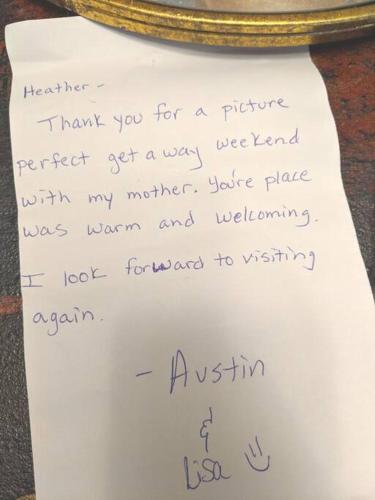 Heather -
Thank you for a picture
perfect get a way weekend
with my mother. You're place
was warm and welcoming.
I look forward to visiting
again.
- Austin
&
Lisa